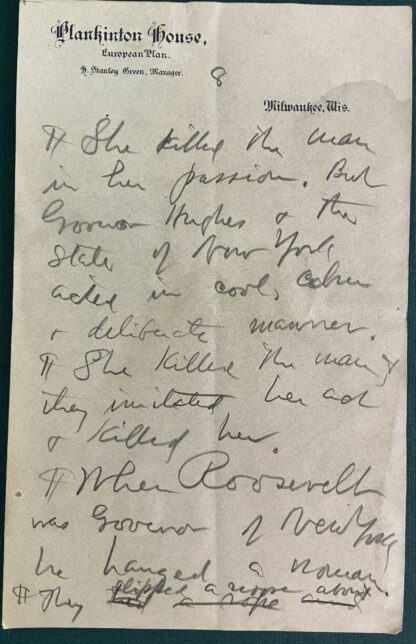 Plankinton House,
European Plan.
H. Stanley Green, Manager.
8
Milwaukee, Wis.
¶ She killed the man
in her passion. But
Governor Hughes & the
State of New York
acted in cool, calm
& deliberate manner.
¶ She killed the man &
they imitated her act
& killed her.
¶ When Roosevelt
was Governor of New York
he hanged a woman.
slipped a noose about
¶ They a rope